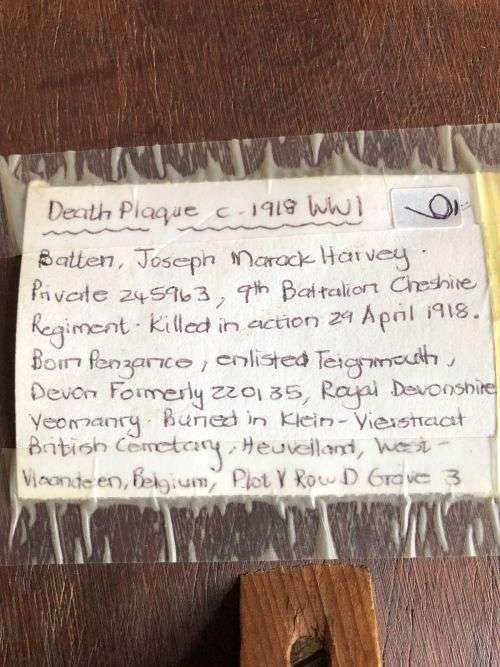 Death Plaque c. 1918 WW1
Batten, Joseph Marack Harvey.
Private 245963, 9th Battalion Cheshire
Regiment. Killed in action 29 April 1918.
Born Penzance, enlisted Teignmouth,
Devon Formerly 220135, Royal Devonshire
Yeomanry. Buried in Klein-Vierstraat
British Cemetary, Heuvelland, West-
Vlaandeen, Belgium, Plot V Row D Grave 3